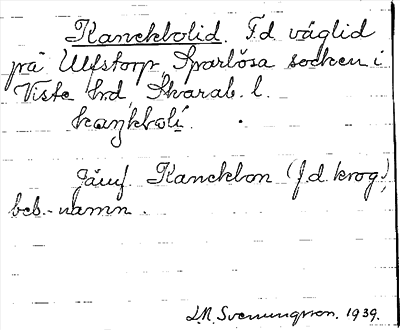 Kanekbolid. F.d. väglid
på Ulfstorp, Sparlösa socken i
Viste hrd, Skarab. l.
kaŋkbolí.
Jämf. Kanekbon (f.d. krog),
beb.-namn.
L.M. Svenungsson. 1939.